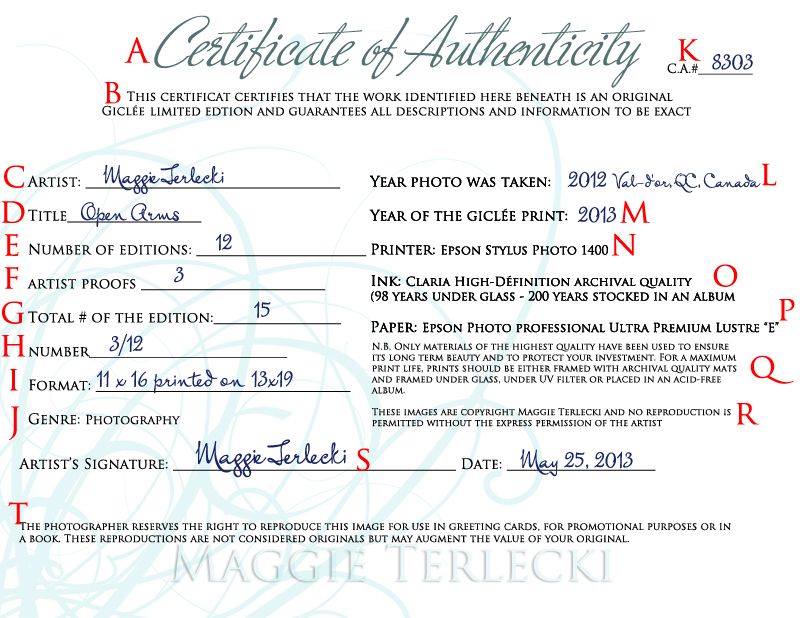 A Certificate of Authenticity
K C.A.# 8303
B This certificat certifies that the work identified here beneath is an original
Giclée limited edtion and guarantees all descriptions and information to be exact
C Artist: Maggie Terlecki
D Title Open Arms
E Number of editions: 12
F artist proofs 3
G Total # of the edition: 15
H number 3/12
I Format: 11 x 16 printed on 13x19
J Genre: Photography
Year photo was taken: 2012 Val-d'or, QC, Canada L
Year of the giclée print: 2013 M
Printer: Epson Stylus Photo 1400 N
Ink: Claria High-Définition archival quality O
(98 years under glass - 200 years stocked in an album
P
Paper: Epson Photo professional Ultra Premium Lustre "E"
N.B. Only materials of the highest quality have been used to ensure
its long term beauty and to protect your investment. For a maximum
print life, prints should be either framed with archival quality mats Q
and framed under glass, under UV filter or placed in an acid-free
album.
These images are copyright Maggie Terlecki and no reproduction is R
permitted without the express permission of the artist
Artist's Signature: Maggie Terlecki S Date: May 25, 2013
T
The photographer reserves the right to reproduce this image for use in greeting cards, for promotional purposes or in
a book. These reproductions are not considered originals but may augment the value of your original.
Maggie Terlecki